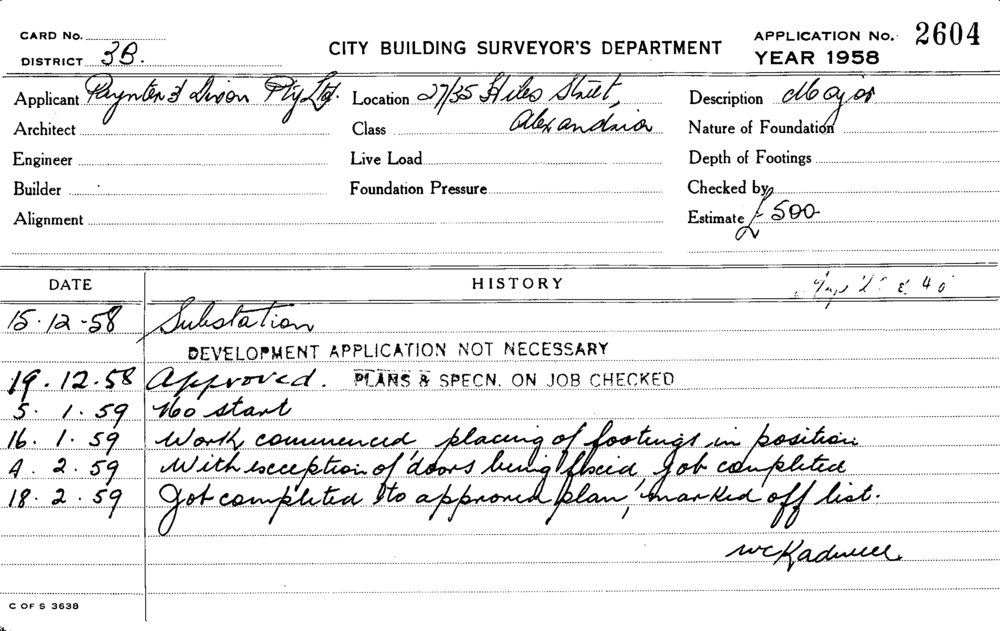 CARD No.
DISTRICT 3B.
CITY BUILDING SURVEYOR'S DEPARTMENT
APPLICATION No. 2604
YEAR 1958
Applicant Paynter & Dixon Pty Ltd. Location 27/35 Hiles Street, Description Major
Architect Class Alexandria Nature of Foundation
Engineer Live Load Depth of Footings
Builder Foundation Pressure Checked by
Alignment Estimate £500
DATE HISTORY
& 40
15.12-58 Substation
DEVELOPMENT APPLICATION NOT NECESSARY
19.12.58 Approved. PLANS & SPECN. ON JOB CHECKED
5. 1. 59 No start
16. 1. 59 Work commenced placing of footings in position
4. 2. 59 With exception of doors being fixed, job completed
18. 2. 59 Job completed to approved plan, marked off list.
C OF S 3638